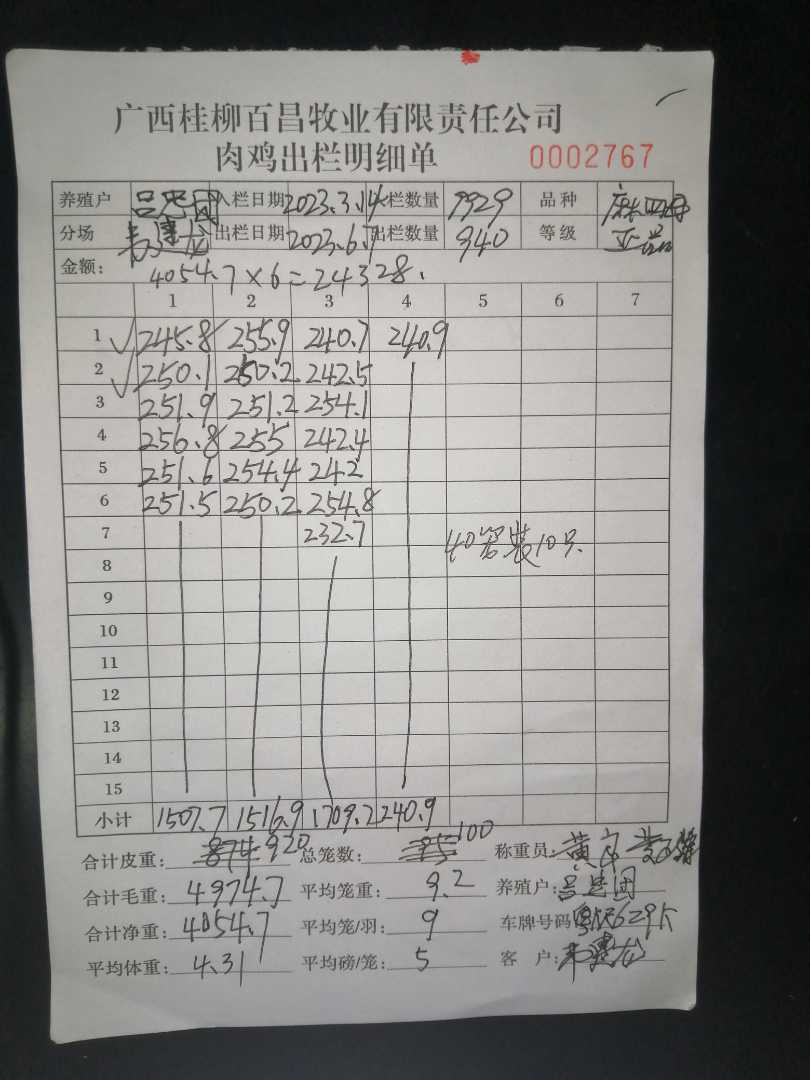 广西桂柳百昌牧业有限责任公司
肉鸡出栏明细单 0002767
养殖户 入栏日期 2023.3.14 入栏数量 7929 品种
分场 韦建龙 出栏日期 2023.6.7 出栏数量 940 等级
金额: 4054.7×6=24328.
1 2 3 4 5 6 7
1 245.8 255.9 240.7 240.9
2 250.1 250.2 242.5
3 251.9 251.2 254.1
4 256.8 255 242.4
5 251.6 254.4 242
6 251.5 250.2 254.8
7 232.7 40笼装10只.
8
9
10
11
12
13
14
15
小计 1507.7 1516.9 1709.2 240.9
合计皮重: 874 920 总笼数: 85 100 称重员:
合计毛重: 4974.7 平均笼重: 9.2 养殖户:
合计净重: 4054.7 平均笼/羽: 9 车牌号码
平均体重: 4.31 平均磅/笼: 5 客户: 韦建龙